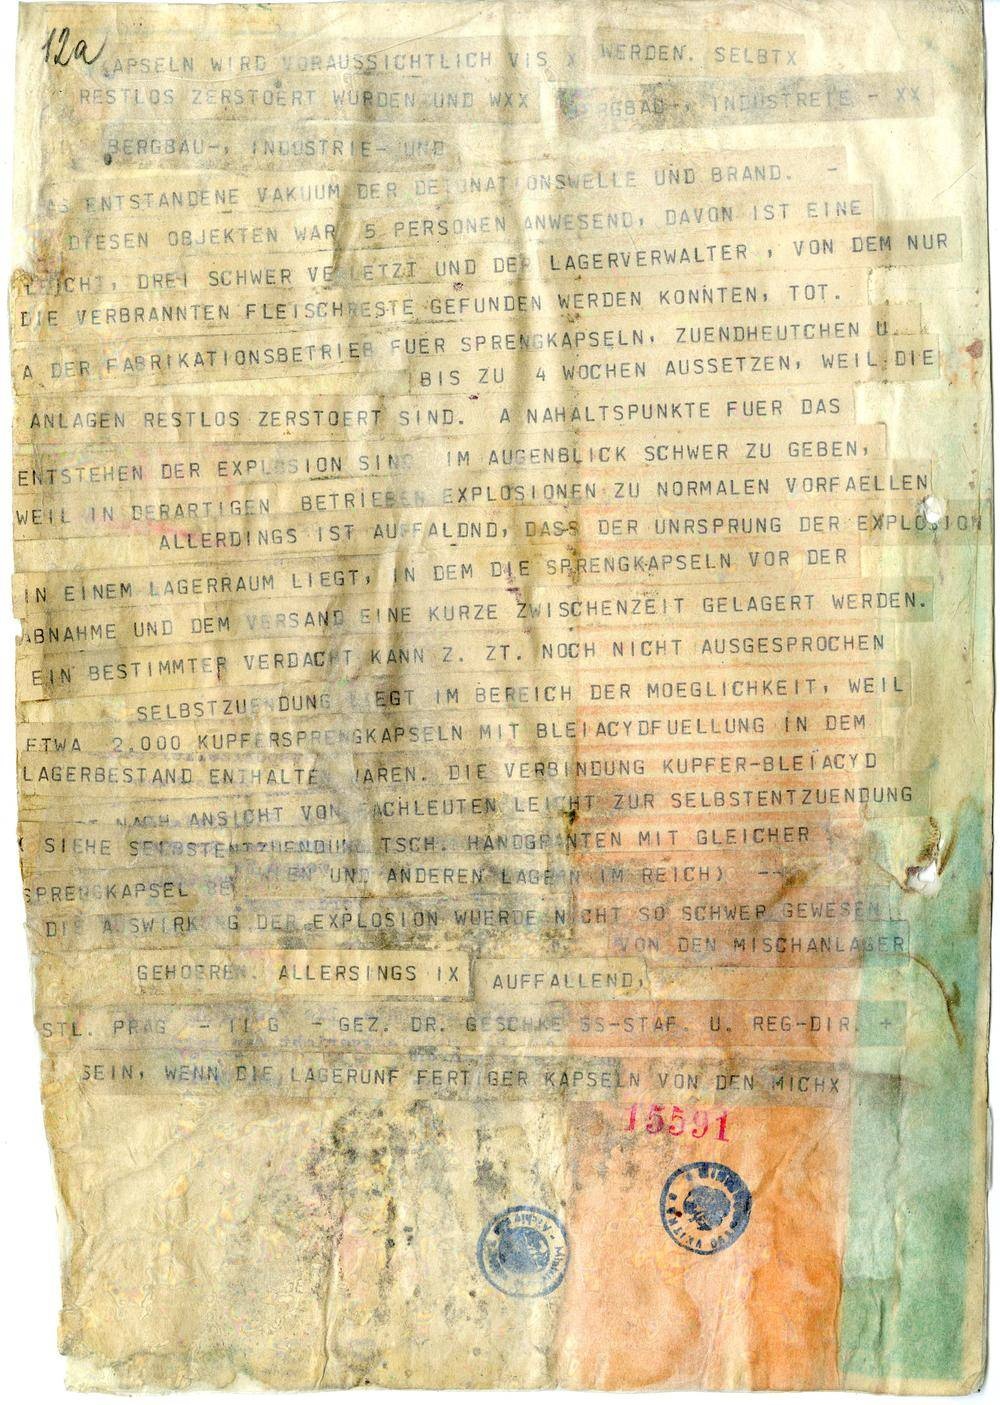 12a
KAPSELN WIRD VORAUSSICHTLICH VIS X WERDEN. SELBTX
RESTLOS ZERSTOERT WURDEN UND WXX BERGBAU-, INDUSTREIE - XX
BERGBAU-, INDUSTRIE- UND
AS ENTSTANDENE VAKUUM DER DETONATIONSWELLE UND BRAND. -
DIESEN OBJEKTEN WAR 5 PERSONEN ANWESEND, DAVON IST EINE
LEICHT, DREI SCHWER VERLETZT UND DER LAGERVERWALTER , VON DEM NUR
DIE VERBRANNTEN FLEISCHRESTE GEFUNDEN WERDEN KONNTEN, TOT.
A DER FABRIKATIONSBETRIEB FUER SPRENGKAPSELN, ZUENDHEUTCHEN U.
BIS ZU 4 WOCHEN AUSSETZEN, WEIL DIE
ANLAGEN RESTLOS ZERSTOERT SIND. A NAHALTSPUNKTE FUER DAS
ENTSTEHEN DER EXPLOSION SIND IM AUGENBLICK SCHWER ZU GEBEN,
WEIL IN DERARTIGEN BETRIEBEN EXPLOSIONEN ZU NORMALEN VORFAELLEN
ALLERDINGS IST AUFFALDND, DASS DER UNRSPRUNG DER EXPLOSION
IN EINEM LAGERRAUM LIEGT, IN DEM DIE SPRENGKAPSELN VOR DER
ABNAHME UND DEM VERSAND EINE KURZE ZWISCHENZEIT GELAGERT WERDEN.
EIN BESTIMMTER VERDACHT KANN Z. ZT. NOCH NICHT AUSGESPROCHEN
SELBSTZUENDUNG LIEGT IM BEREICH DER MOEGLICHKEIT, WEIL
ETWA 2.000 KUPFERSPRENGKAPSELN MIT BLEIACYDFUELLUNG IN DEM
LAGERBESTAND ENTHALTEN WAREN. DIE VERBINDUNG KUPFER-BLEIACYD
NACH ANSICHT VON FACHLEUTEN LEICHT ZUR SELBSTENTZUENDUNG
( SIEHE SELBSTENTZUENDUNG TSCH. HANDGRANTEN MIT GLEICHER
SPRENGKAPSEL BEI WIEN UND ANDEREN LAGERN IM REICH) --
DIE AUSWIRKUNG DER EXPLOSION WUERDE NICHT SO SCHWER GEWESEN
VON DEN MISCHANLAGER
GEHOEREN. ALLERSINGS IX AUFFALLEND,
STL. PRAG - II G - GEZ. DR. GESCHKE SS-STAF. U. REG-DIR. +
SEIN, WENN DIE LAGERUNF FERTIGER KAPSELN VON DEN MICHX
15591